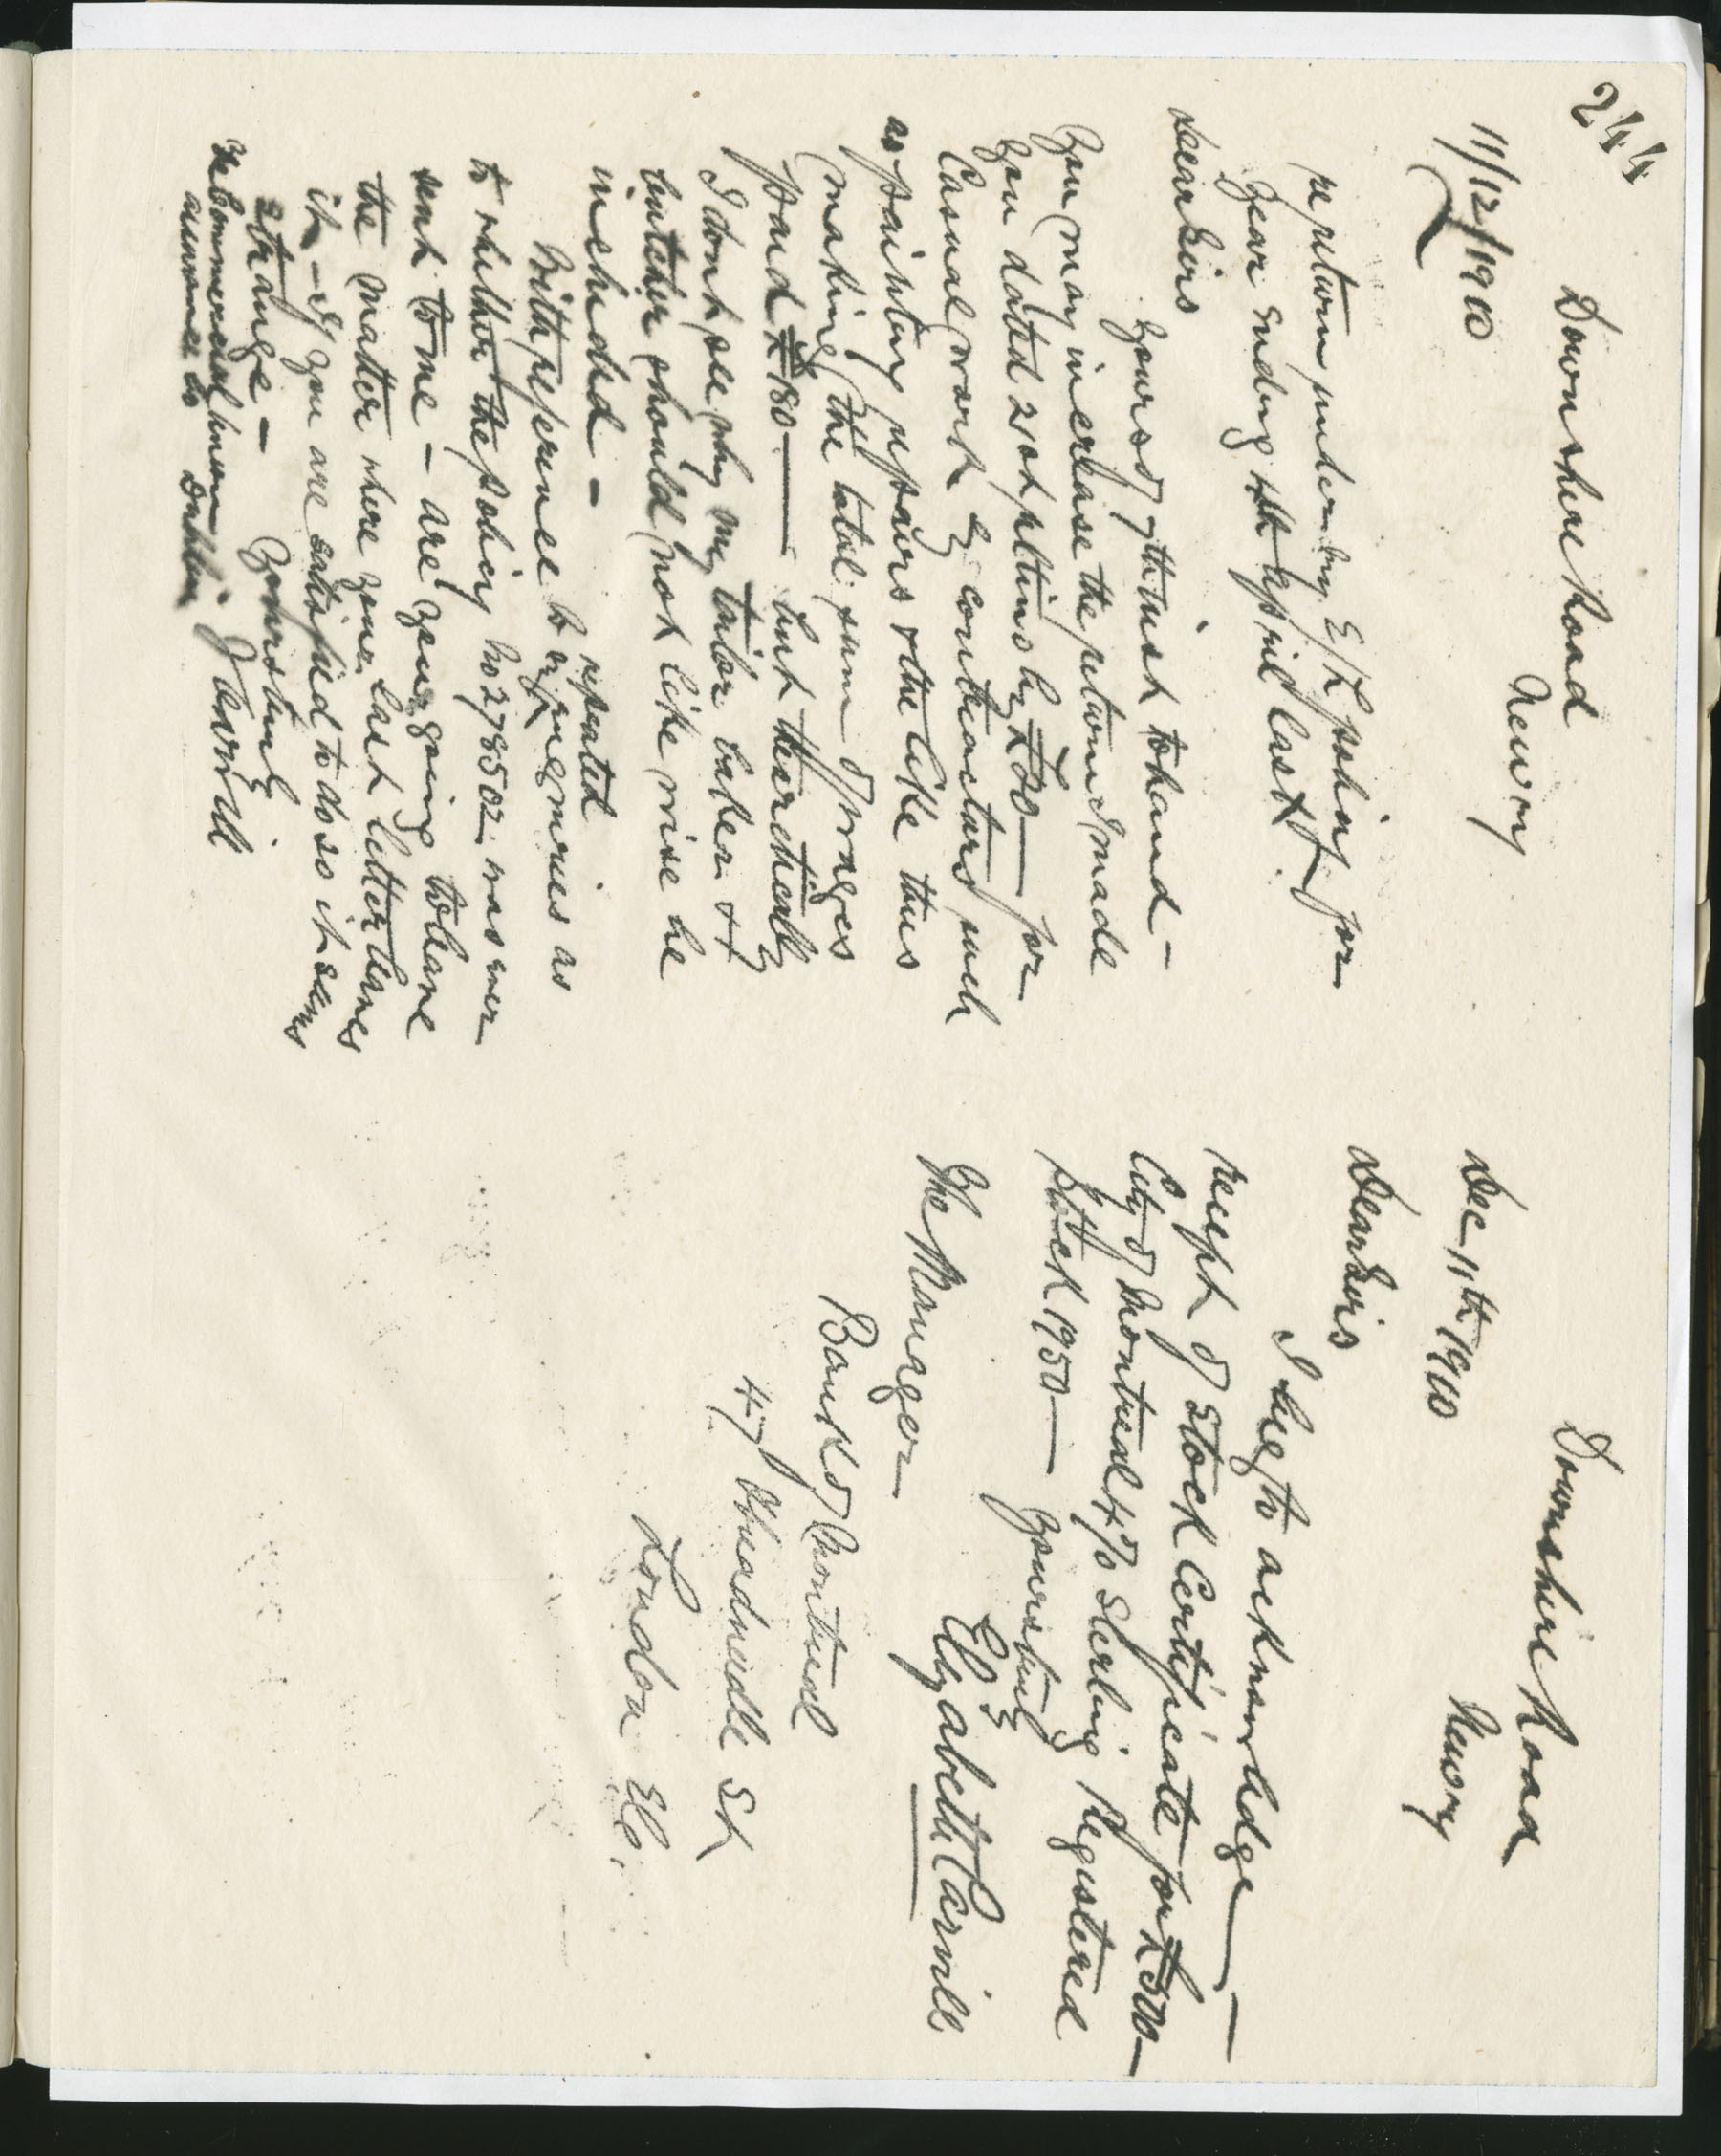 244
Downshire Road
Newry
11/12/1910
re return under my E/L policy for
year ending 4th April last
Dear Sirs
Yours of 7th inst to hand –
You may increase the return I made
you dated 21st ultimo by £20 – for
Casual work by contractors such
as painting repairs & the like thus
making the total sum of wages
paid £180 — but theoretically
I dont see why my tailor baker &
butcher should not likewise be
included –
With reference to my repeated enquiries as
to whether the policy No 278502 was ever
sent to me – are you going to leave
the matter where your last letter leaves
it – If you are satisfied to do so it seems
strange –
Yours truly
The Commercial Union
Assurance Co Dublin
Downshire Road
Newry
Dec 11th 1910
Dear Sirs
I beg to acknowledge —
receipt of Stock Certificate for £500 –
City of Montreal 4% Sterling Registered
Stock 1950 —
Yours truly
Elizabeth Carvill
The Manager
Bank of Montreal
47 Threadneedle St
London EC.